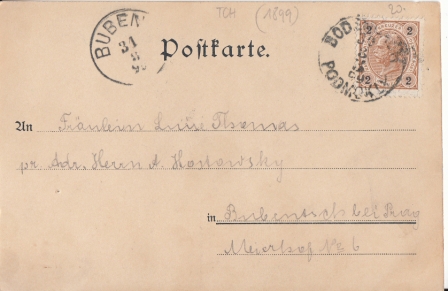 TCH (1899) 20.
BUBEN
31
Postkarte.
BOD
PODMOKLY
2 2
2 2
An Fräulein Luise Thomas
pr. Adr. Herrn A. Hostowsky
in Bubentsch bei Prag
Meierhof No 6